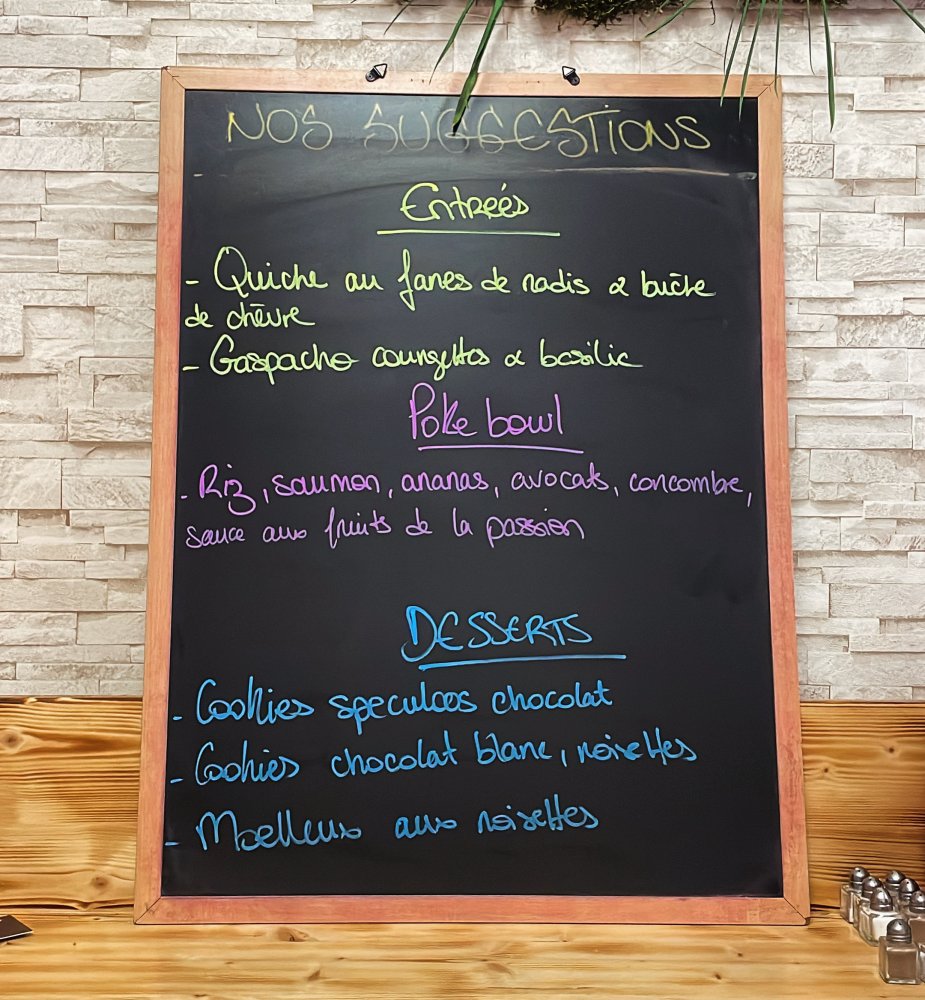 NOS SUGGESTIONS
Entreés
- Quiche au fanes de radis & bûche
de chèvre
- Gaspacho courgettes & basilic
Poke bowl
- Riz, saumon, ananas, avocats, concombre,
sauce aux fruits de la passion
DESSERTS
- Cookies speculoos chocolat
- Cookies chocolat blanc, noisettes
- Moelleux aux noisettes